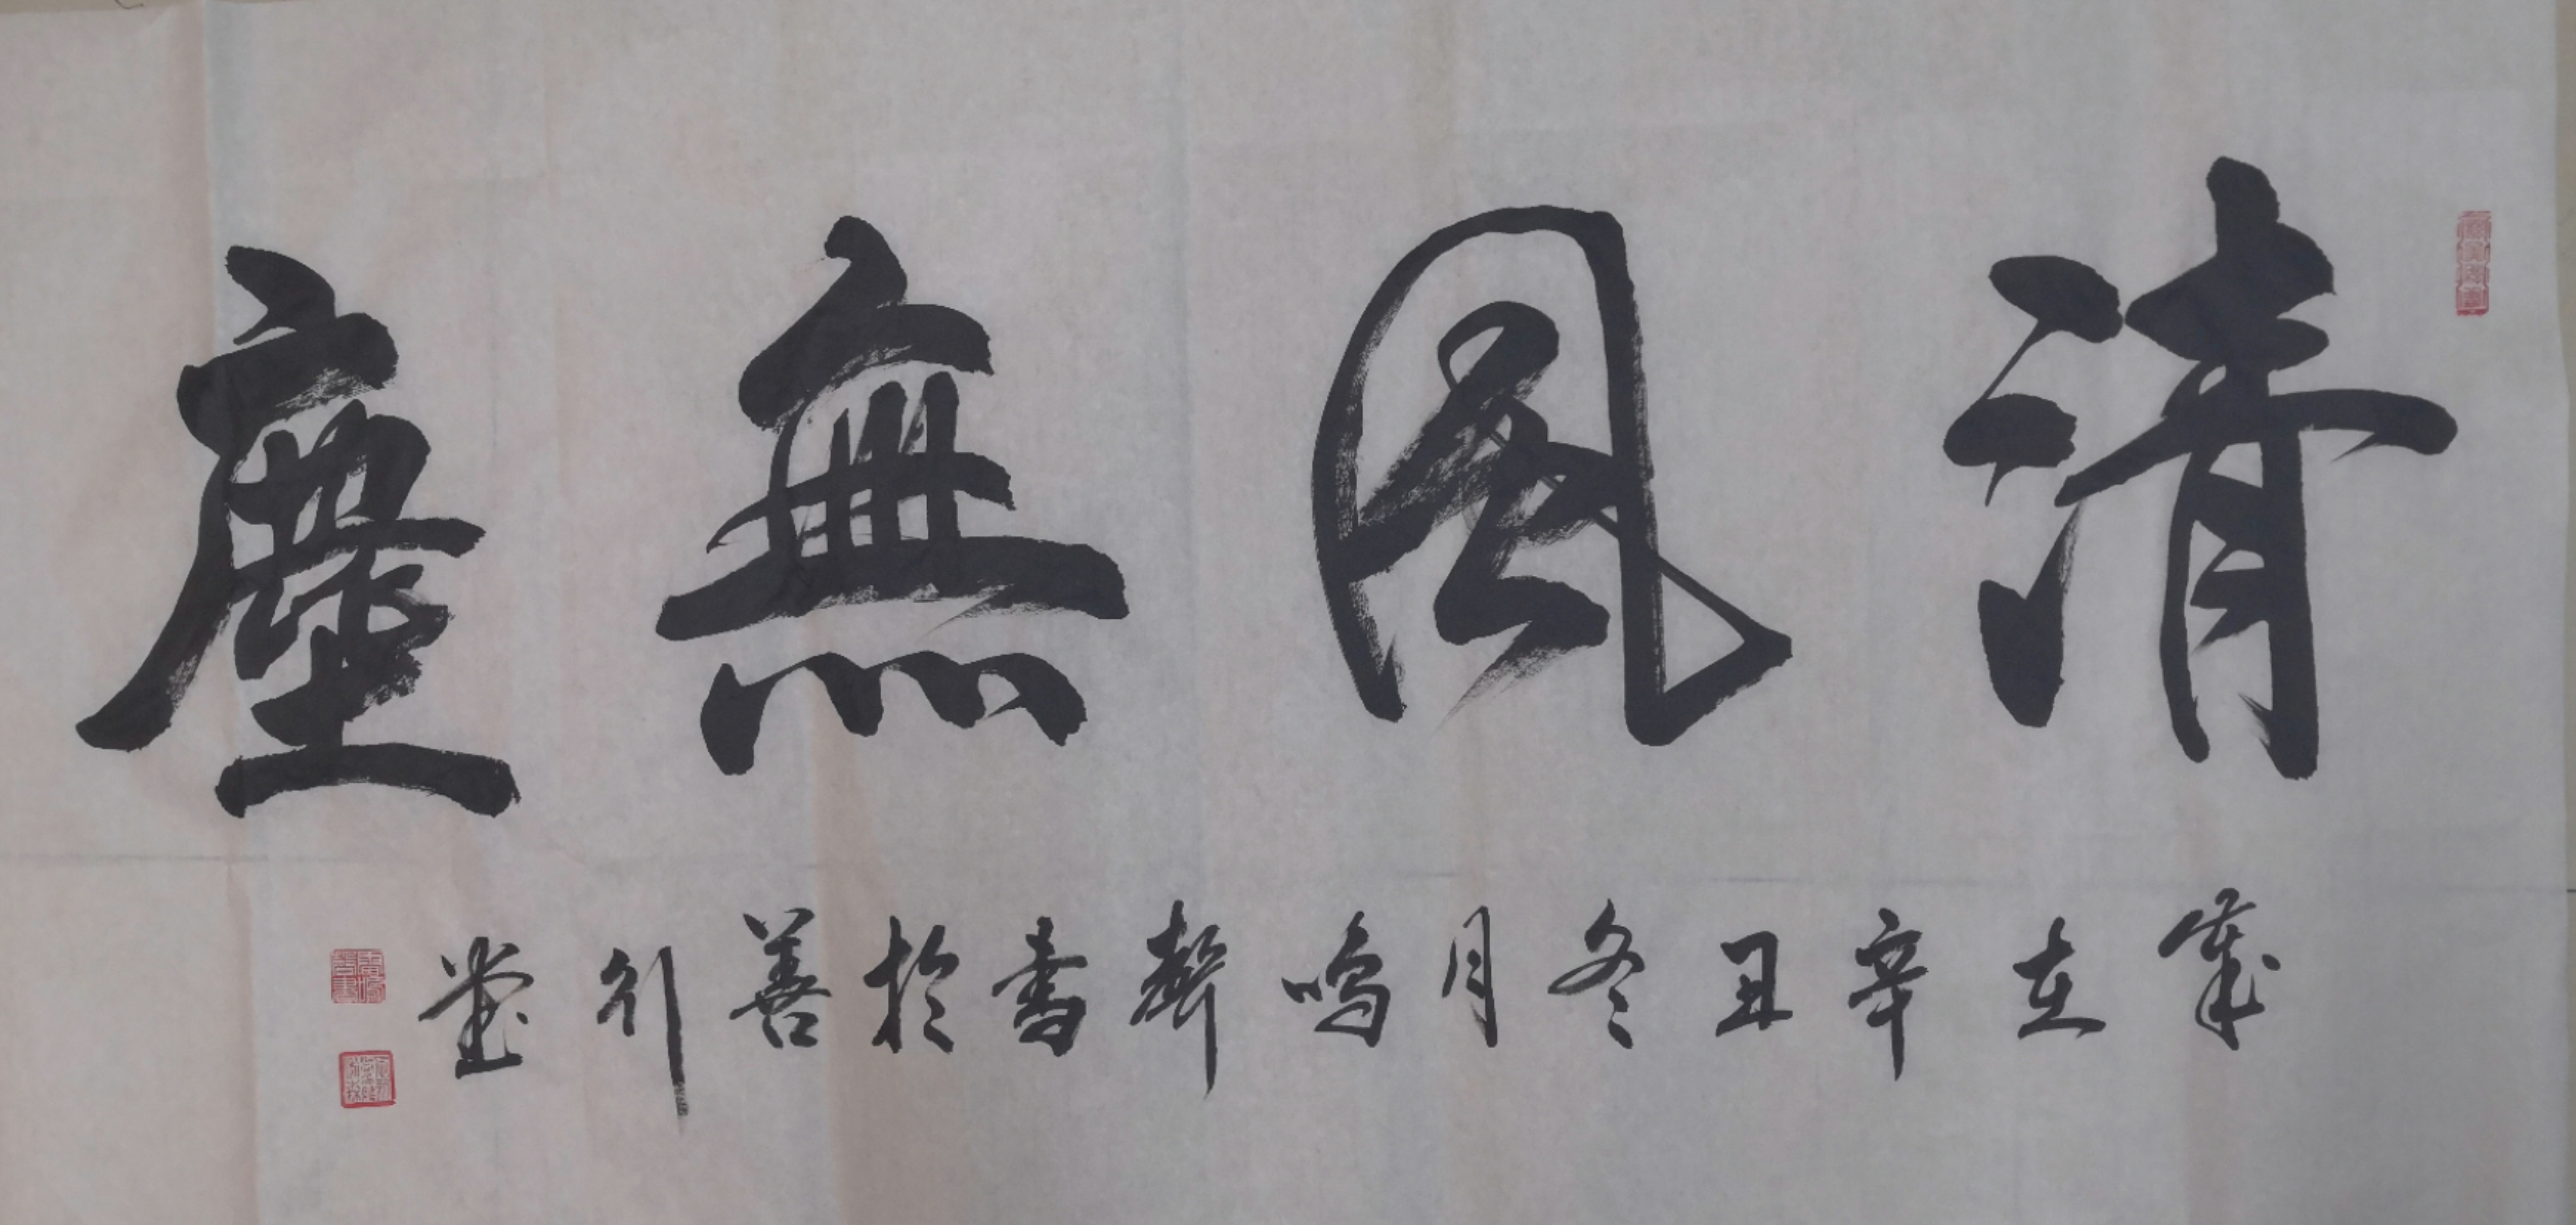 清風無塵
歲在辛丑冬月鳴聲書於善行堂